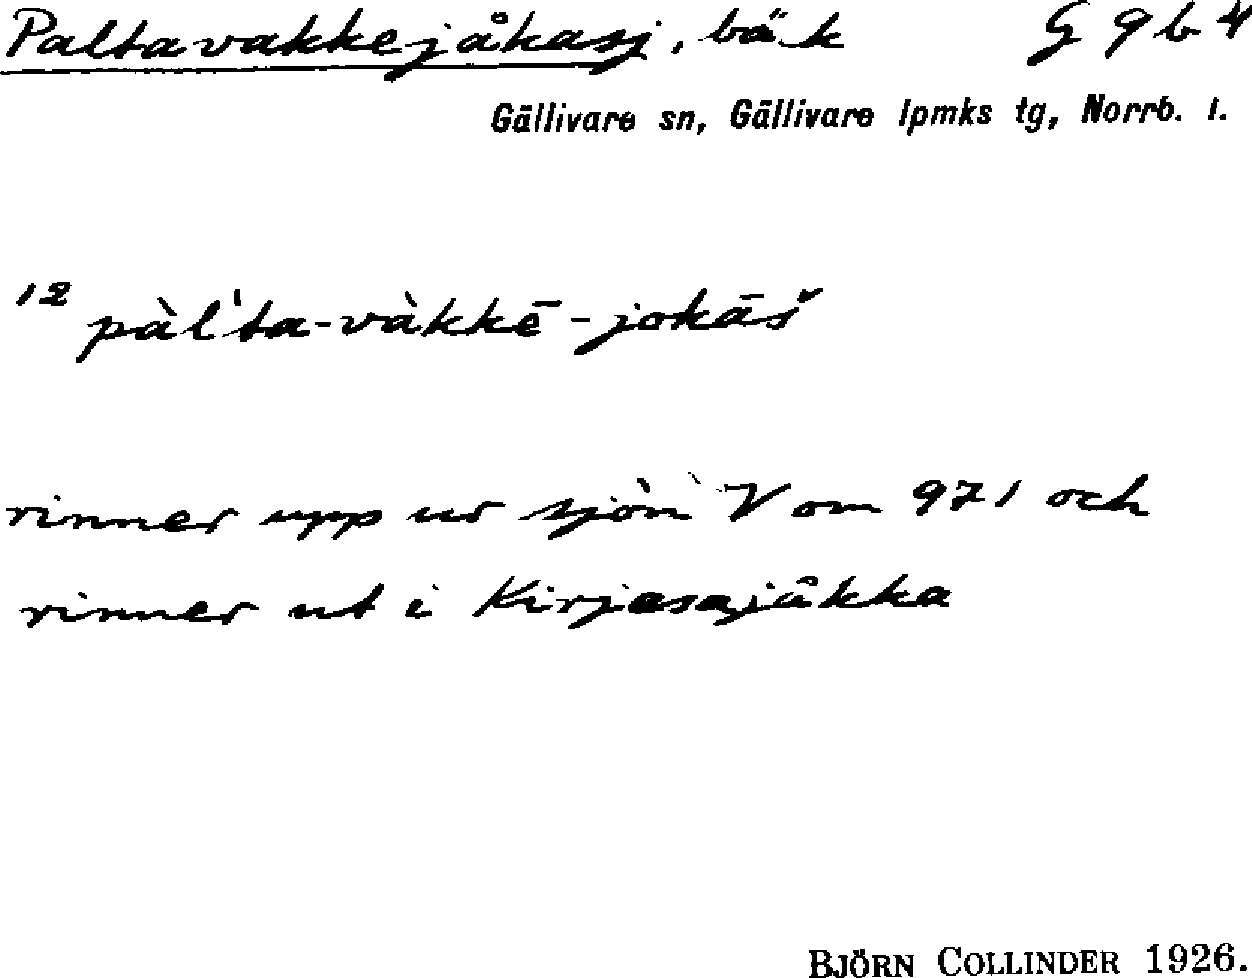 Paltavakkejåkasj, bäck G 9 b 4
Gällivare sn, Gällivare lpmks tg, Norrb. l.
12 pàl'ta-vàkkē-jokāš
rinner upp ur sjön V om 971 och
rinner ut i Kirjasajåkka
BJÖRN COLLINDER 1926.